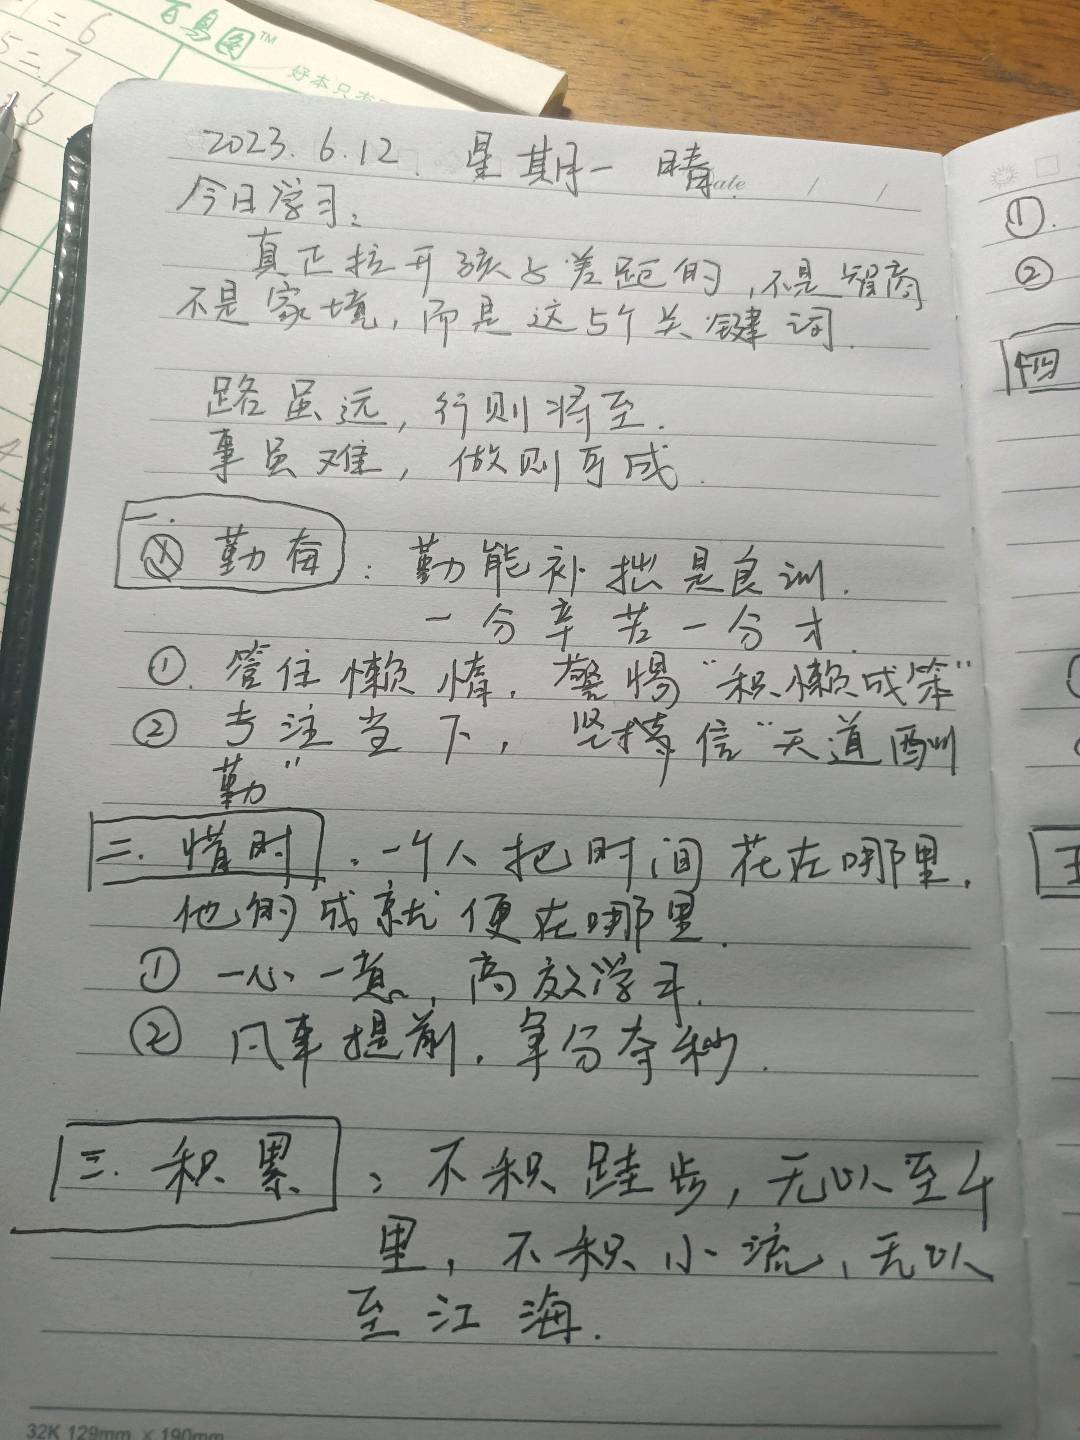 =6
5=7
6
百易图™
好本只
2023.6.12. 星期一 晴.
ate / /
今日学习:
真正拉开孩与差距的,不是智商
不是家境,而是这5个关键词.
路虽远,行则将至.
事虽难,做则可成.
一.
① 勤奋:勤能补拙是良训.
一分辛苦一分才.
①. 管住懒惰,警惕“积懒成笨”
② 专注当下,坚持信“天道酬
勤”
二.惜时:一个人把时间花在哪里,
他的成就便在哪里.
① 一心一意,高效学习.
② 凡事提前,争分夺秒.
三.积累:不积跬步,无以至千
里,不积小流,无以
至江海.
32K 129mm × 190mm
①.
②
四